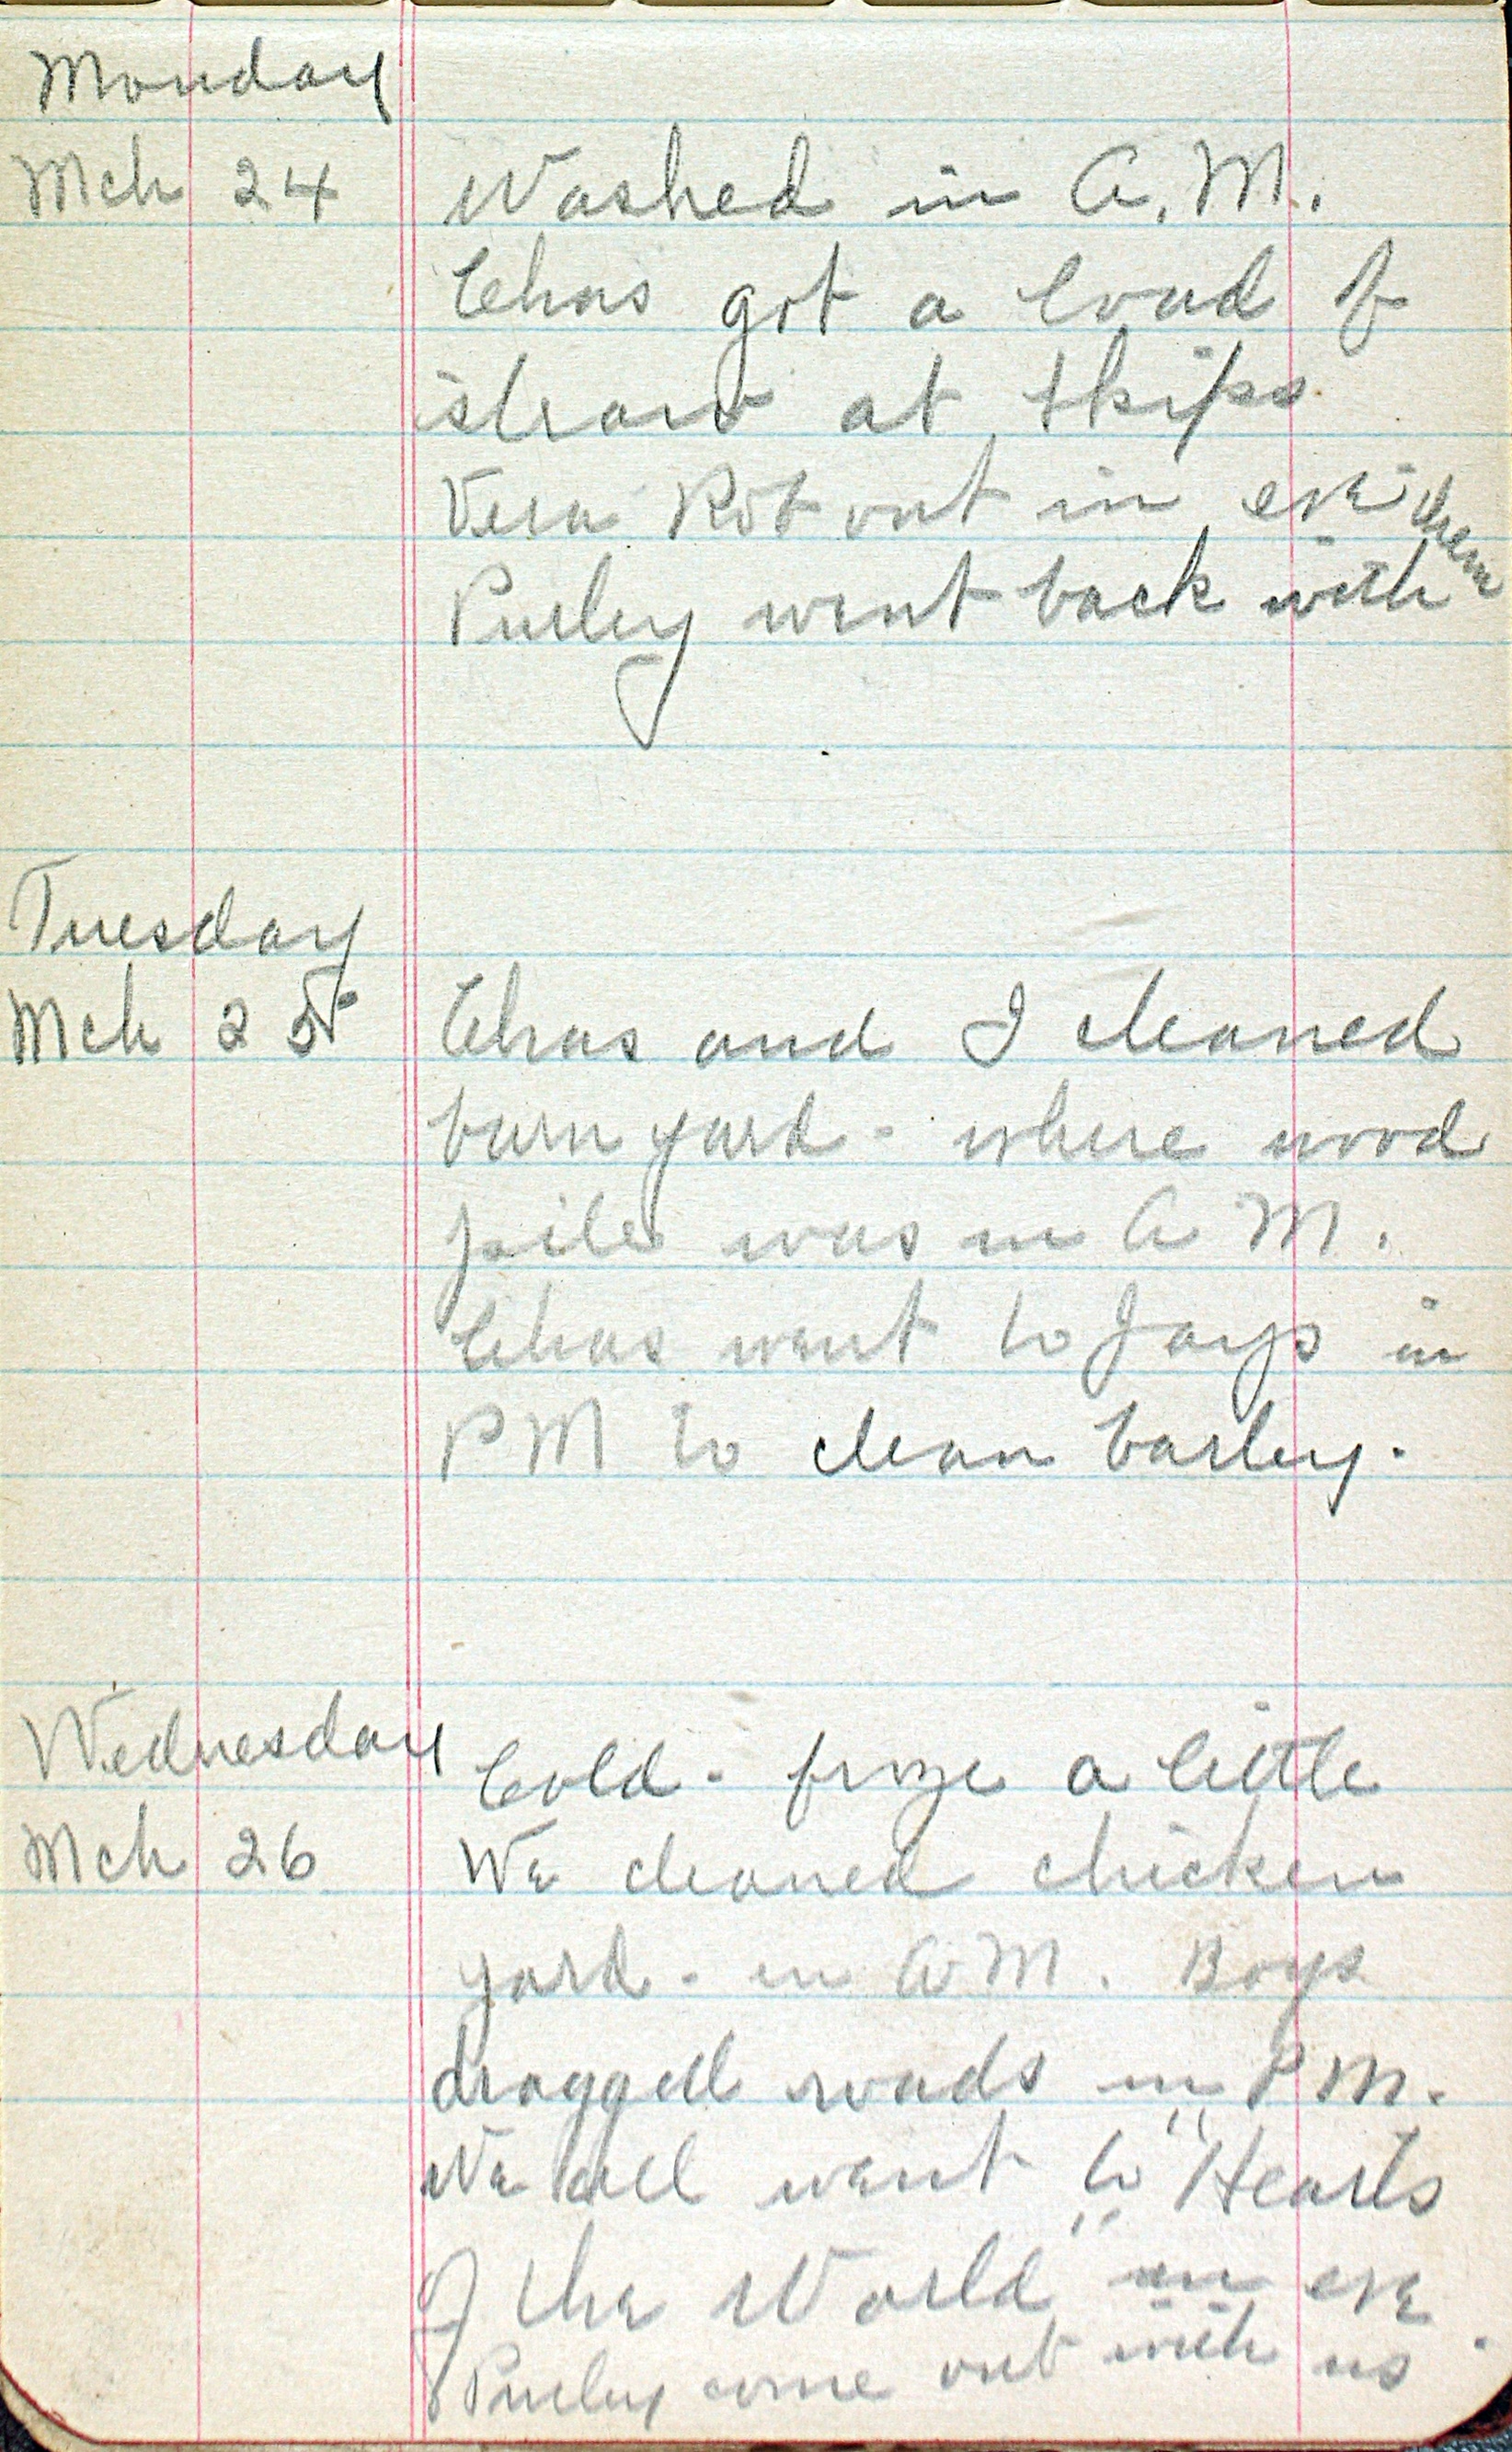 Monday
Mch 24 Washed in A.M.
Chas got a load of
straw at Skips
Vera Rob out in eve
Purley went back with them
Tuesday
Mch 25 Chas and I cleaned
barn yard - where wood
pile was in A M.
Chas went to Jays in
PM to clean barley.
Wednesday Cold - froze a little
Mch 26 We cleaned chicken
yard - in AM. Boys
dragged roads in PM.
We all went to "Hearts
of the World" in eve
Purley come out with us.